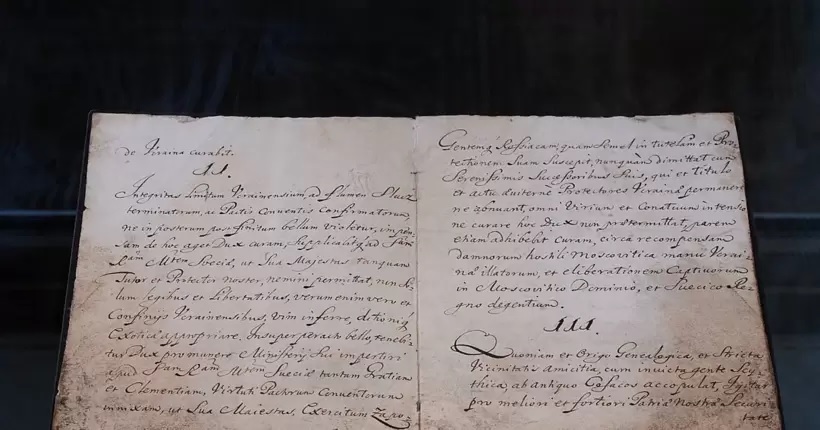 de Vcraina curabit.
II.
Integritas limitum Vcrainensium, ad flumen Slucz
terminatorum, ac Pactis Conventis Confirmatorum,
ne in posterum post finitum bellum violetur, in
sam de hoc aget Dux curam, Supplicabitq ad
Mtem Sveciæ, ut Sua Majestas tanquam
Tutor et Protector noster, nemini permittat, non
lum legibus et Libertatibus, verum enim vero et
Confinijs Vcrainensibus, vim inferre, ditioniq
Exoticæ appropriare. Insuper peracto bello tenebi
tur Dux pro munere Ministerij Sui impertiri
apud Mtem Sueciæ tantum Gratiam
et Clementiam, Virtuti Pactorum Conventorum
innixam, ut Sua Maiestas, Exercitum Zapo
Gentemq Rossiacam, quam Semel in tutelam et Pro
tectionem Suam Suscepit, nunquam dimittat cum
Serenissimis Successoribus Suis, qui et titulo
et actu æuiterne Protectores Vcrainæ permanere
ne omni Virium et Conatuum intensio
ne curare hoc Dux non prætermittat, parem
etiam adhibebit curam, circa recompensam
damnorum hostili Moscovitica manu Vcrai
næ illatorum, et eliberationem Captivorum
in Moscovitico Dominio, et Suecico Re
gno degentium.
III.
Quoniam et Origo Genealogica, et Stricta
Vicinitatis amicitia, cum invicta gente Scy
thica, ab antiquo Cosacos accopulat, Igitur
pro meliori et fortiori Patriæ Nostræ Securi
tate